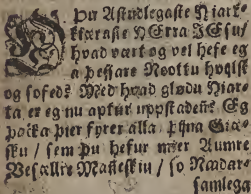 Þu Astudlegaste Hiart-
kiæraste HErra JESu/
hvad vært og vel hefe eg
a þessare Noottu hvijlst
og sofed; Med hvad glødu Hiar-
ta, er eg nu aptur uppstadenñ Eg
þacka þier fyrer alla þijna Giæ-
sku / sem þu hefur mier Aumre
Vesællre Maneskiu / so Nædar-
samlega